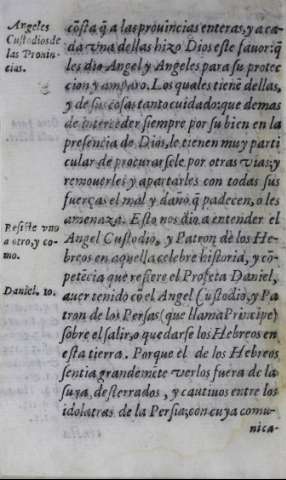 Angeles
Custodios de
las Prouin-
cias.
cõsta q̃ a las prouincias enteras, y a ca-
da vna dellas hizo Dios este fauor: q̃
les dio Angel y Angeles para su protec
cion y amparo. Los quales tienẽ dellas,
y de sus cosas tanto cuidado: que demas
de interceder siempre por su bien en la
presencia de Dios, le tienen muy parti
cular de procurarsele por otras vias; y
remouerles y apartarles con todas sus
fuerças el mal y daño q̃ padecen, o les
amenaza. Esto nos dio a entender el
Resiste vno
a otro, y co-
mo.
Angel Custodio, y Patron de los He-
breos en aquella celebre historia, y cõ-
petẽcia que refiere el Profeta Daniel,
Daniel. 10.
auer tenido cõ el Angel Custodio, y Pa
tron de los Persas (que llama Principe)
sobre el salir, o quedarse los Hebreos en
esta tierra. Porque el de los Hebreos
sentia grandemẽte verlos fuera de la
suya, desterrados, y cautiuos entre los
idolatras de la Persia; con cuya comu-
nica-